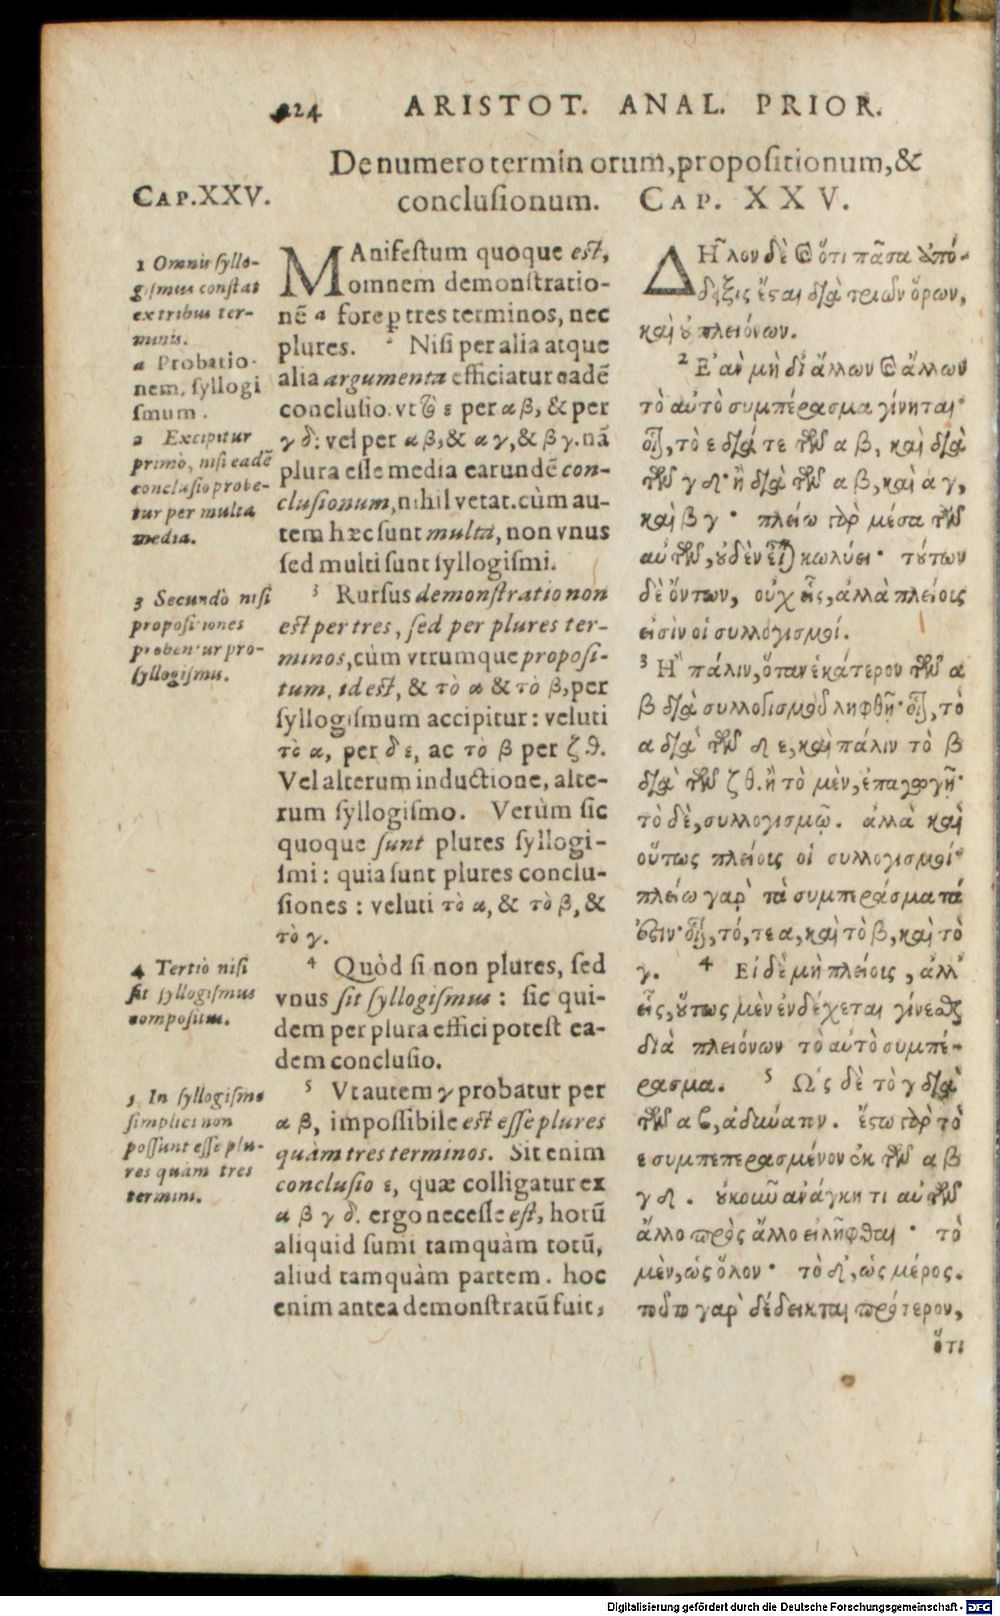 224 ARISTOT. ANAL. PRIOR.
De numero terminorum, propositionum, &
conclusionum. CAP. XXV.
CAP. XXV.
1 Omnis syllo-
gismus constat
ex tribus ter-
minis.
a Probatio-
nem, syllogi
smum.
2 Excipitur
primò, nisi eadē
conclusio probe-
tur per multa
media.
3 Secundò nisi
propositiones
probentur pro-
syllogismū.
4 Tertiò nisi
sit syllogismus
compositus.
5 In syllogismo
simplici non
possunt esse plu-
res quàm tres
termini.
MAnifestum quoque est,
omnem demonstratio-
nē a fore ꝑ tres terminos, nec
plures. 2 Nisi per alia atque
alia argumenta efficiatur eadē
conclusio. vt τὸ ε per α β, & per
γ δ: vel per α β, & α γ, & β γ. nā
plura esse media earundē con-
clusionum, nihil vetat. cùm au-
tem hæc sunt multa, non vnus
sed multi sunt syllogismi.
3 Rursus demonstratio non
est per tres, sed per plures ter-
minos, cùm vtrumque proposi-
tum, id est, & τὸ α & τὸ β, per
syllogismum accipitur: veluti
τὸ α, per δ ε, ac τὸ β per ζ θ.
Vel alterum inductione, alte-
rum syllogismo. Verùm sic
quoque sunt plures syllogi-
smi: quia sunt plures conclu-
siones: veluti τὸ α, & τὸ β, &
τὸ γ.
4 Quòd si non plures, sed
vnus sit syllogismus: sic qui-
dem per plura effici potest ea-
dem conclusio.
5 Vt autem γ probatur per
α β, impossibile est esse plures
quàm tres terminos. Sit enim
conclusio ε, quæ colligatur ex
α β γ δ. ergo necesse est, horū
aliquid sumi tamquàm totū,
aliud tamquàm partem. hoc
enim antea demonstratū fuit,
ΔΗ῀λον δὲ καὶ ὅτι πᾶσα ἀπό-
δειξις ἔσται διὰ τριῶν ὅρων,
καὶ οὐ πλειόνων.
2 Ἐὰν μὴ δι' ἄλλων καὶ ἄλλων
τὸ αὐτὸ συμπέρασμα γίνηται·
οἷον, τὸ ε διά τε τῶν α β, καὶ διὰ
τῶν γ δ· ἢ διὰ τῶν α β, καὶ α γ,
καὶ β γ· πλείω γὰρ μέσα τῶν
αὐτῶν, οὐδὲν εἶναι κωλύει· τούτων
δὲ ὄντων, οὐχ εἷς, ἀλλὰ πλείους
εἰσὶν οἱ συλλογισμοί.
3 Ἢ πάλιν, ὅταν ἑκάτερον τῶν α
β διὰ συλλογισμοῦ ληφθῇ· οἷον, τὸ
α διὰ τῶν δ ε, καὶ πάλιν τὸ β
διὰ τῶν ζ θ. ἢ τὸ μὲν, ἐπαγωγῇ·
τὸ δὲ, συλλογισμῷ. ἀλλὰ καὶ
οὕτως πλείους οἱ συλλογισμοί·
πλείω γὰρ τὰ συμπεράσματά
ἐστιν· οἷον, τό, τε α, καὶ τὸ β, καὶ τὸ
γ. 4 Εἰ δὲ μὴ πλείους, ἀλλ'
εἷς, οὕτως μὲν ἐνδέχεται γίνεσθαι
διὰ πλειόνων τὸ αὐτὸ συμπέ-
ρασμα. 5 Ὡς δὲ τὸ γ διὰ
τῶν α β, ἀδύνατον. ἔστω γὰρ τὸ
ε συμπεπερασμένον ἐκ τῶν α β
γ δ. οὐκοῦν ἀνάγκη τι αὐτῶν
ἄλλο πρὸς ἄλλο εἰλῆφθαι· τὸ
μὲν, ὡς ὅλον· τὸ δ', ὡς μέρος.
τοῦτο γὰρ δέδεικται πρότερον,
ὅτι
Digitalisierung gefördert durch die Deutsche Forschungsgemeinschaft - DFG